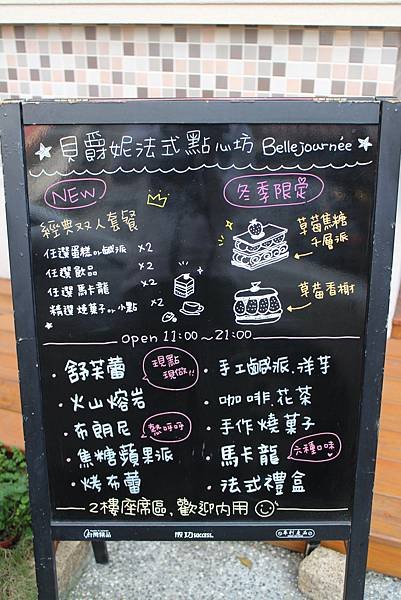 貝爵妮法式點心坊 Bellejournée
NEW
經典双人套餐
任選蛋糕or鹹派 x2
任選飲品 x2
任選馬卡龍 x2
精選燒菓子or小點 x2
冬季限定
草莓焦糖
千層派
草莓香榭
open 11:00~21:00
・舒芙蕾
現點
現做!!
・火山熔岩
・布朗尼
熱呼呼
・焦糖蘋果派
・烤布蕾
・手工鹹派.洋芋
・咖啡.花茶
・手作燒菓子
・馬卡龍
六種口味
・法式禮盒
2樓座席區,歡迎內用
成功success